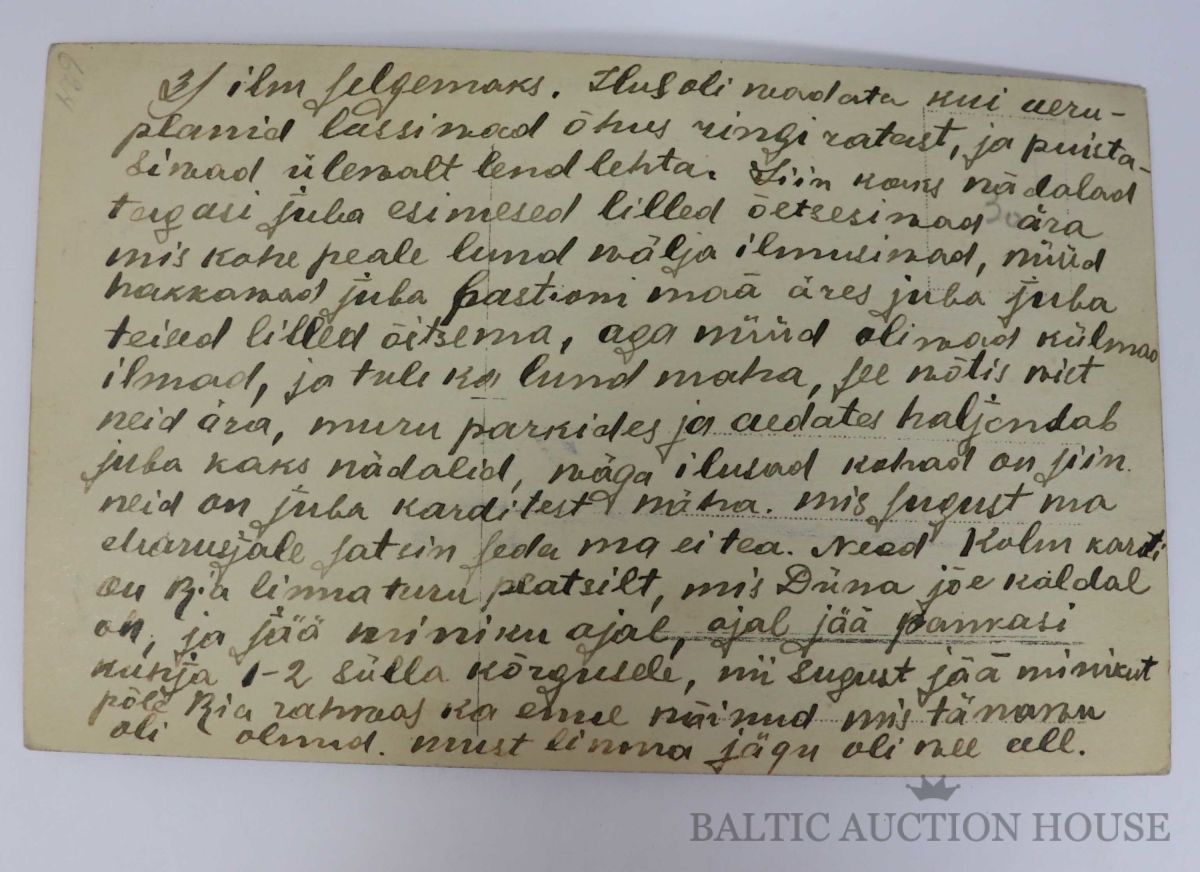 604
3/ ilm selgemaks. Ilus oli wadata kui aeru-
planid lassiwad õhus ringi ratast, ja puista-
siwad ülewalt lendlehta. Siin kaks nädalad
tagasi juba esimesed lilled õetsesiwad ära
mis kohe peale lund wälja ilmusiwad, nüüd
hakkawad juba bastioni mää äres juba juba
teised lilled õitsema, aga nüüd oliwad külmad
ilmad, ja tuli ka lund maha, see wõtis wist
neid ära, muru parkides ja aedates haljendab
juba kaks nädalid, wäga ilusad kohad on siin
neid on juba karditest näha. mis sugust ma
saatsin seda ma ei tea. Need Kolm kardi
on Ria linna turu platsilt, mis Düna jõe kaldal
on, ja jää miniku ajal, ajal jää pankasi
kuhja 1-2 sülla kõrgusele, nii sugust jää minikut
põle Ria rahwas ka enne näinud mis tänawu
oli olnud. must linna jägu oli wee all.
BALTIC AUCTION HOUSE